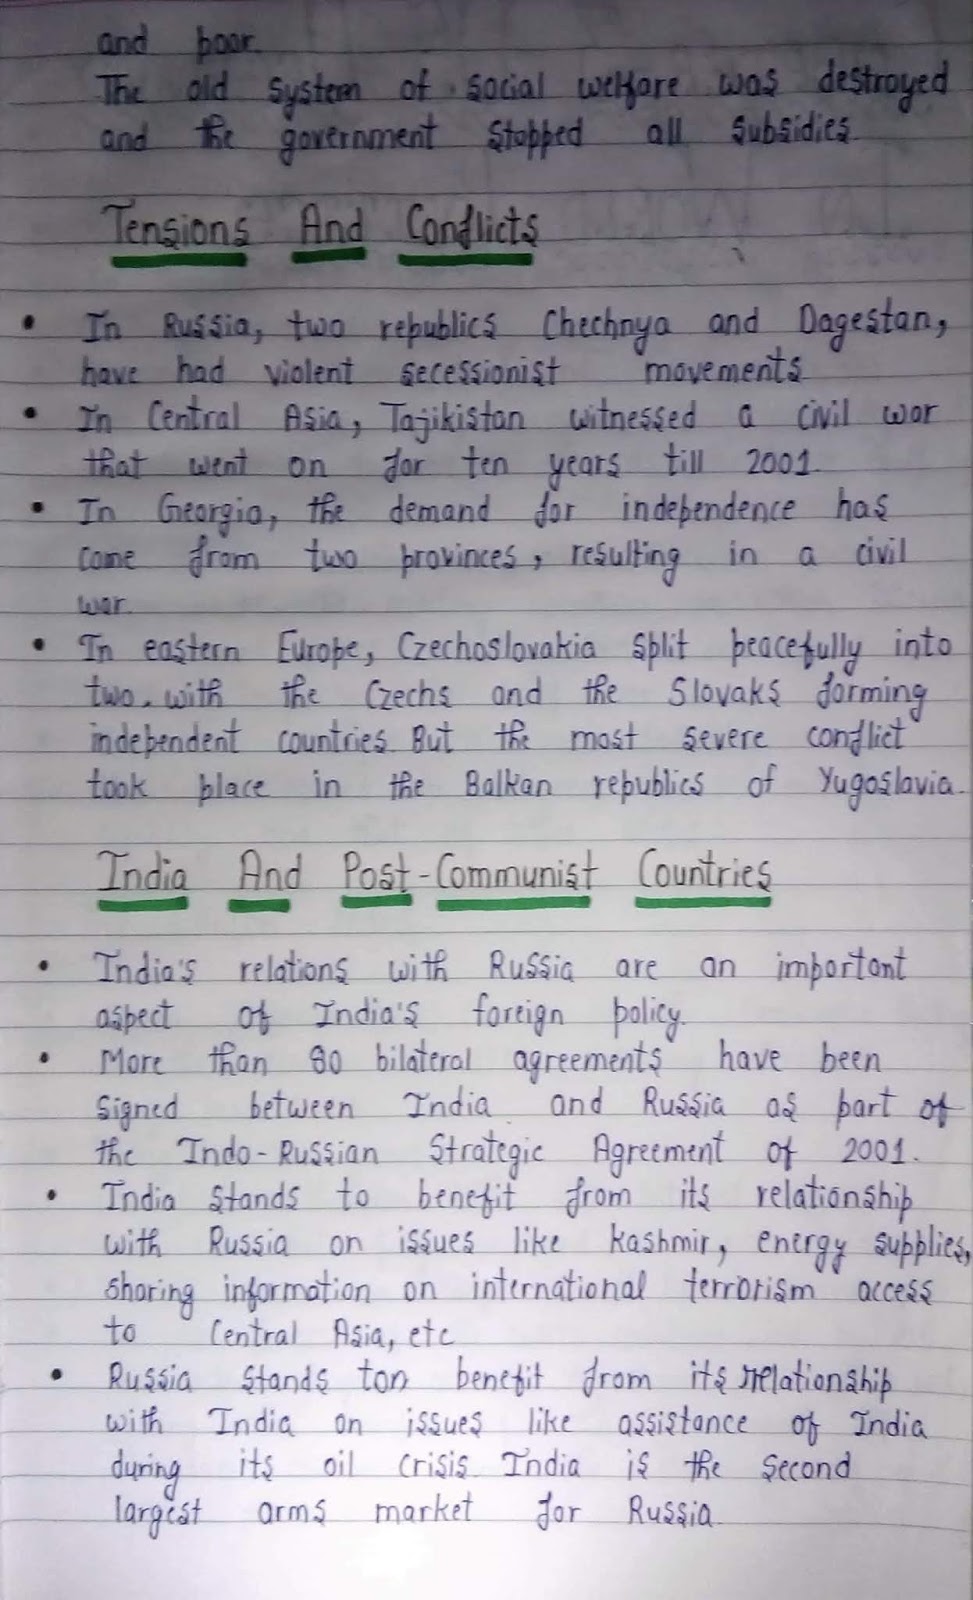 and poor.
The old system of social welfare was destroyed
and the government stopped all subsidies.
Tensions And Conflicts
• In Russia, two republics Chechnya and Dagestan,
have had violent secessionist movements
• In Central Asia, Tajikistan witnessed a civil war
that went on for ten years till 2001.
• In Georgia, the demand for independence has
come from two provinces, resulting in a civil
war.
• In eastern Europe, Czechoslovakia split peacefully into
two, with the Czechs and the Slovaks forming
independent countries. But the most severe conflict
took place in the Balkan republics of Yugoslavia.
India And Post-Communist Countries
• India's relations with Russia are an important
aspect of India's foreign policy.
• More than 80 bilateral agreements have been
signed between India and Russia as part of
the Indo-Russian Strategic Agreement of 2001.
• India stands to benefit from its relationship
with Russia on issues like kashmir, energy supplies,
sharing information on international terrorism access
to Central Asia, etc
• Russia stands ton benefit from its relationship
with India on issues like assistance of India
during its oil crisis. India is the second
largest arms market for Russia.